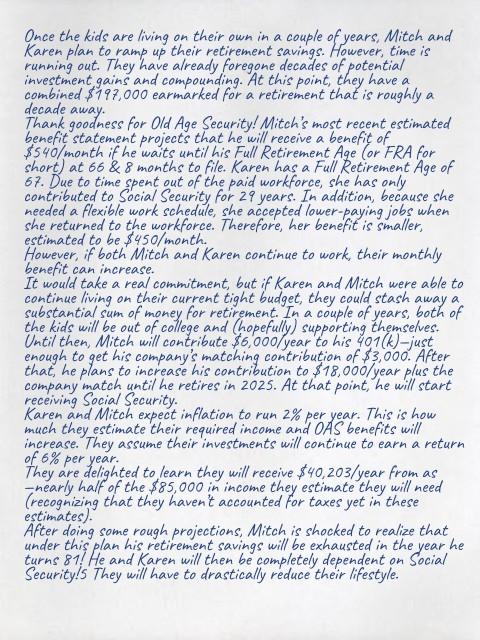 Once the kids are living on their own in a couple of years, Mitch and
Karen plan to ramp up their retirement savings. However, time is
running out. They have already foregone decades of potential
investment gains and compounding. At this point, they have a
combined $197,000 earmarked for a retirement that is roughly a
decade away.
Thank goodness for Old Age Security! Mitch's most recent estimated
benefit statement projects that he will receive a benefit of
$540/month if he waits until his Full Retirement Age (or FRA for
short) at 66 & 8 months to file. Karen has a Full Retirement Age of
67. Due to time spent out of the paid workforce, she has only
contributed to Social Security for 29 years. In addition, because she
needed a flexible work schedule, she accepted lower-paying jobs when
she returned to the workforce. Therefore, her benefit is smaller,
estimated to be $450/month.
However, if both Mitch and Karen continue to work, their monthly
benefit can increase.
It would take a real commitment, but if Karen and Mitch were able to
continue living on their current tight budget, they could stash away a
substantial sum of money for retirement. In a couple of years, both of
the kids will be out of college and (hopefully) supporting themselves.
Until then, Mitch will contribute $6,000/year to his 401(k)—just
enough to get his company's matching contribution of $3,000. After
that, he plans to increase his contribution to $18,000/year plus the
company match until he retires in 2025. At that point, he will start
receiving Social Security.
Karen and Mitch expect inflation to run 2% per year. This is how
much they estimate their required income and OAS benefits will
increase. They assume their investments will continue to earn a return
of 6% per year.
They are delighted to learn they will receive $40,203/year from as
—nearly half of the $85,000 in income they estimate they will need
(recognizing that they haven't accounted for taxes yet in these
estimates).
After doing some rough projections, Mitch is shocked to realize that
under this plan his retirement savings will be exhausted in the year he
turns 81! He and Karen will then be completely dependent on Social
Security!5 They will have to drastically reduce their lifestyle.